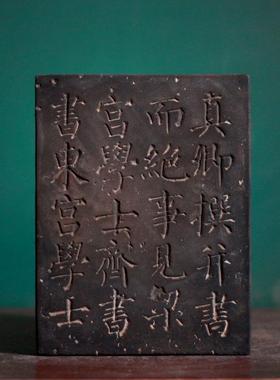 真卿撰并書
而絶事見梁
宫學士齊書
書東宫學士